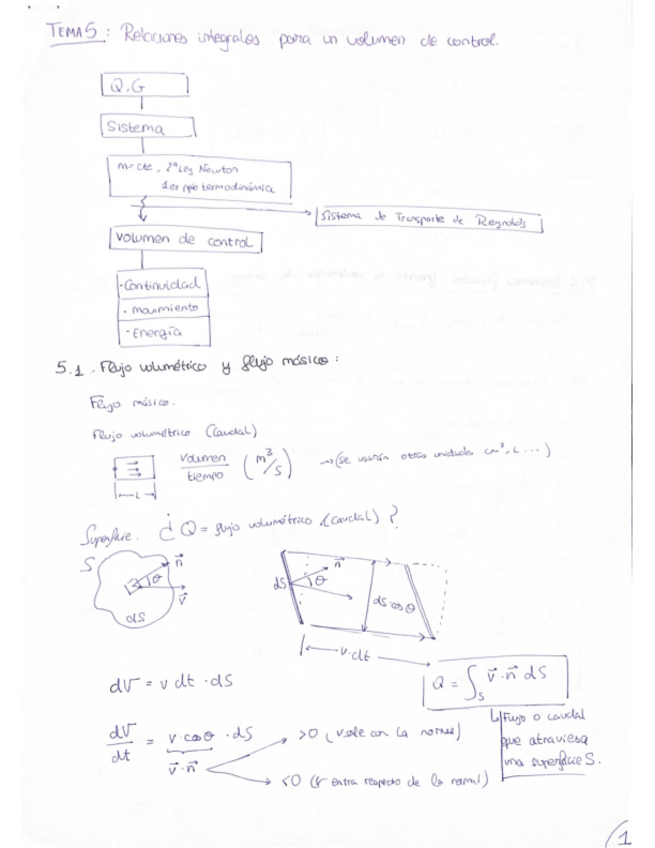 TEMA 5: Relaciones integrales para un volumen de control.
Q, G
Sistema
m=cte, 2ª Ley Newton
1er ppio termodinámica
Sistema de Transporte de Reynolds
Volumen de control
- Continuidad
- movimiento
- Energía
5.1. Flujo volumétrico y flujo másico:
Flujo másico.
Flujo volumétrico (Caudal)
volumen / tiempo (m³/s) → (se usarán otras unidades cm³, L ...)
L
Superficie. ¿Q = flujo volumétrico (caudal)?
S n⃗ θ v⃗ dS
dS n⃗ θ dS cos θ
v·dt
dV = v dt · dS
Q = ∫S v⃗ · n⃗ dS
dV/dt = v · cos θ · dS
v⃗ · n⃗
>0 (v sale con la normal)
<0 (v entra respecto de la normal)
Flujo o caudal
que atraviesa
una superficie S.
1